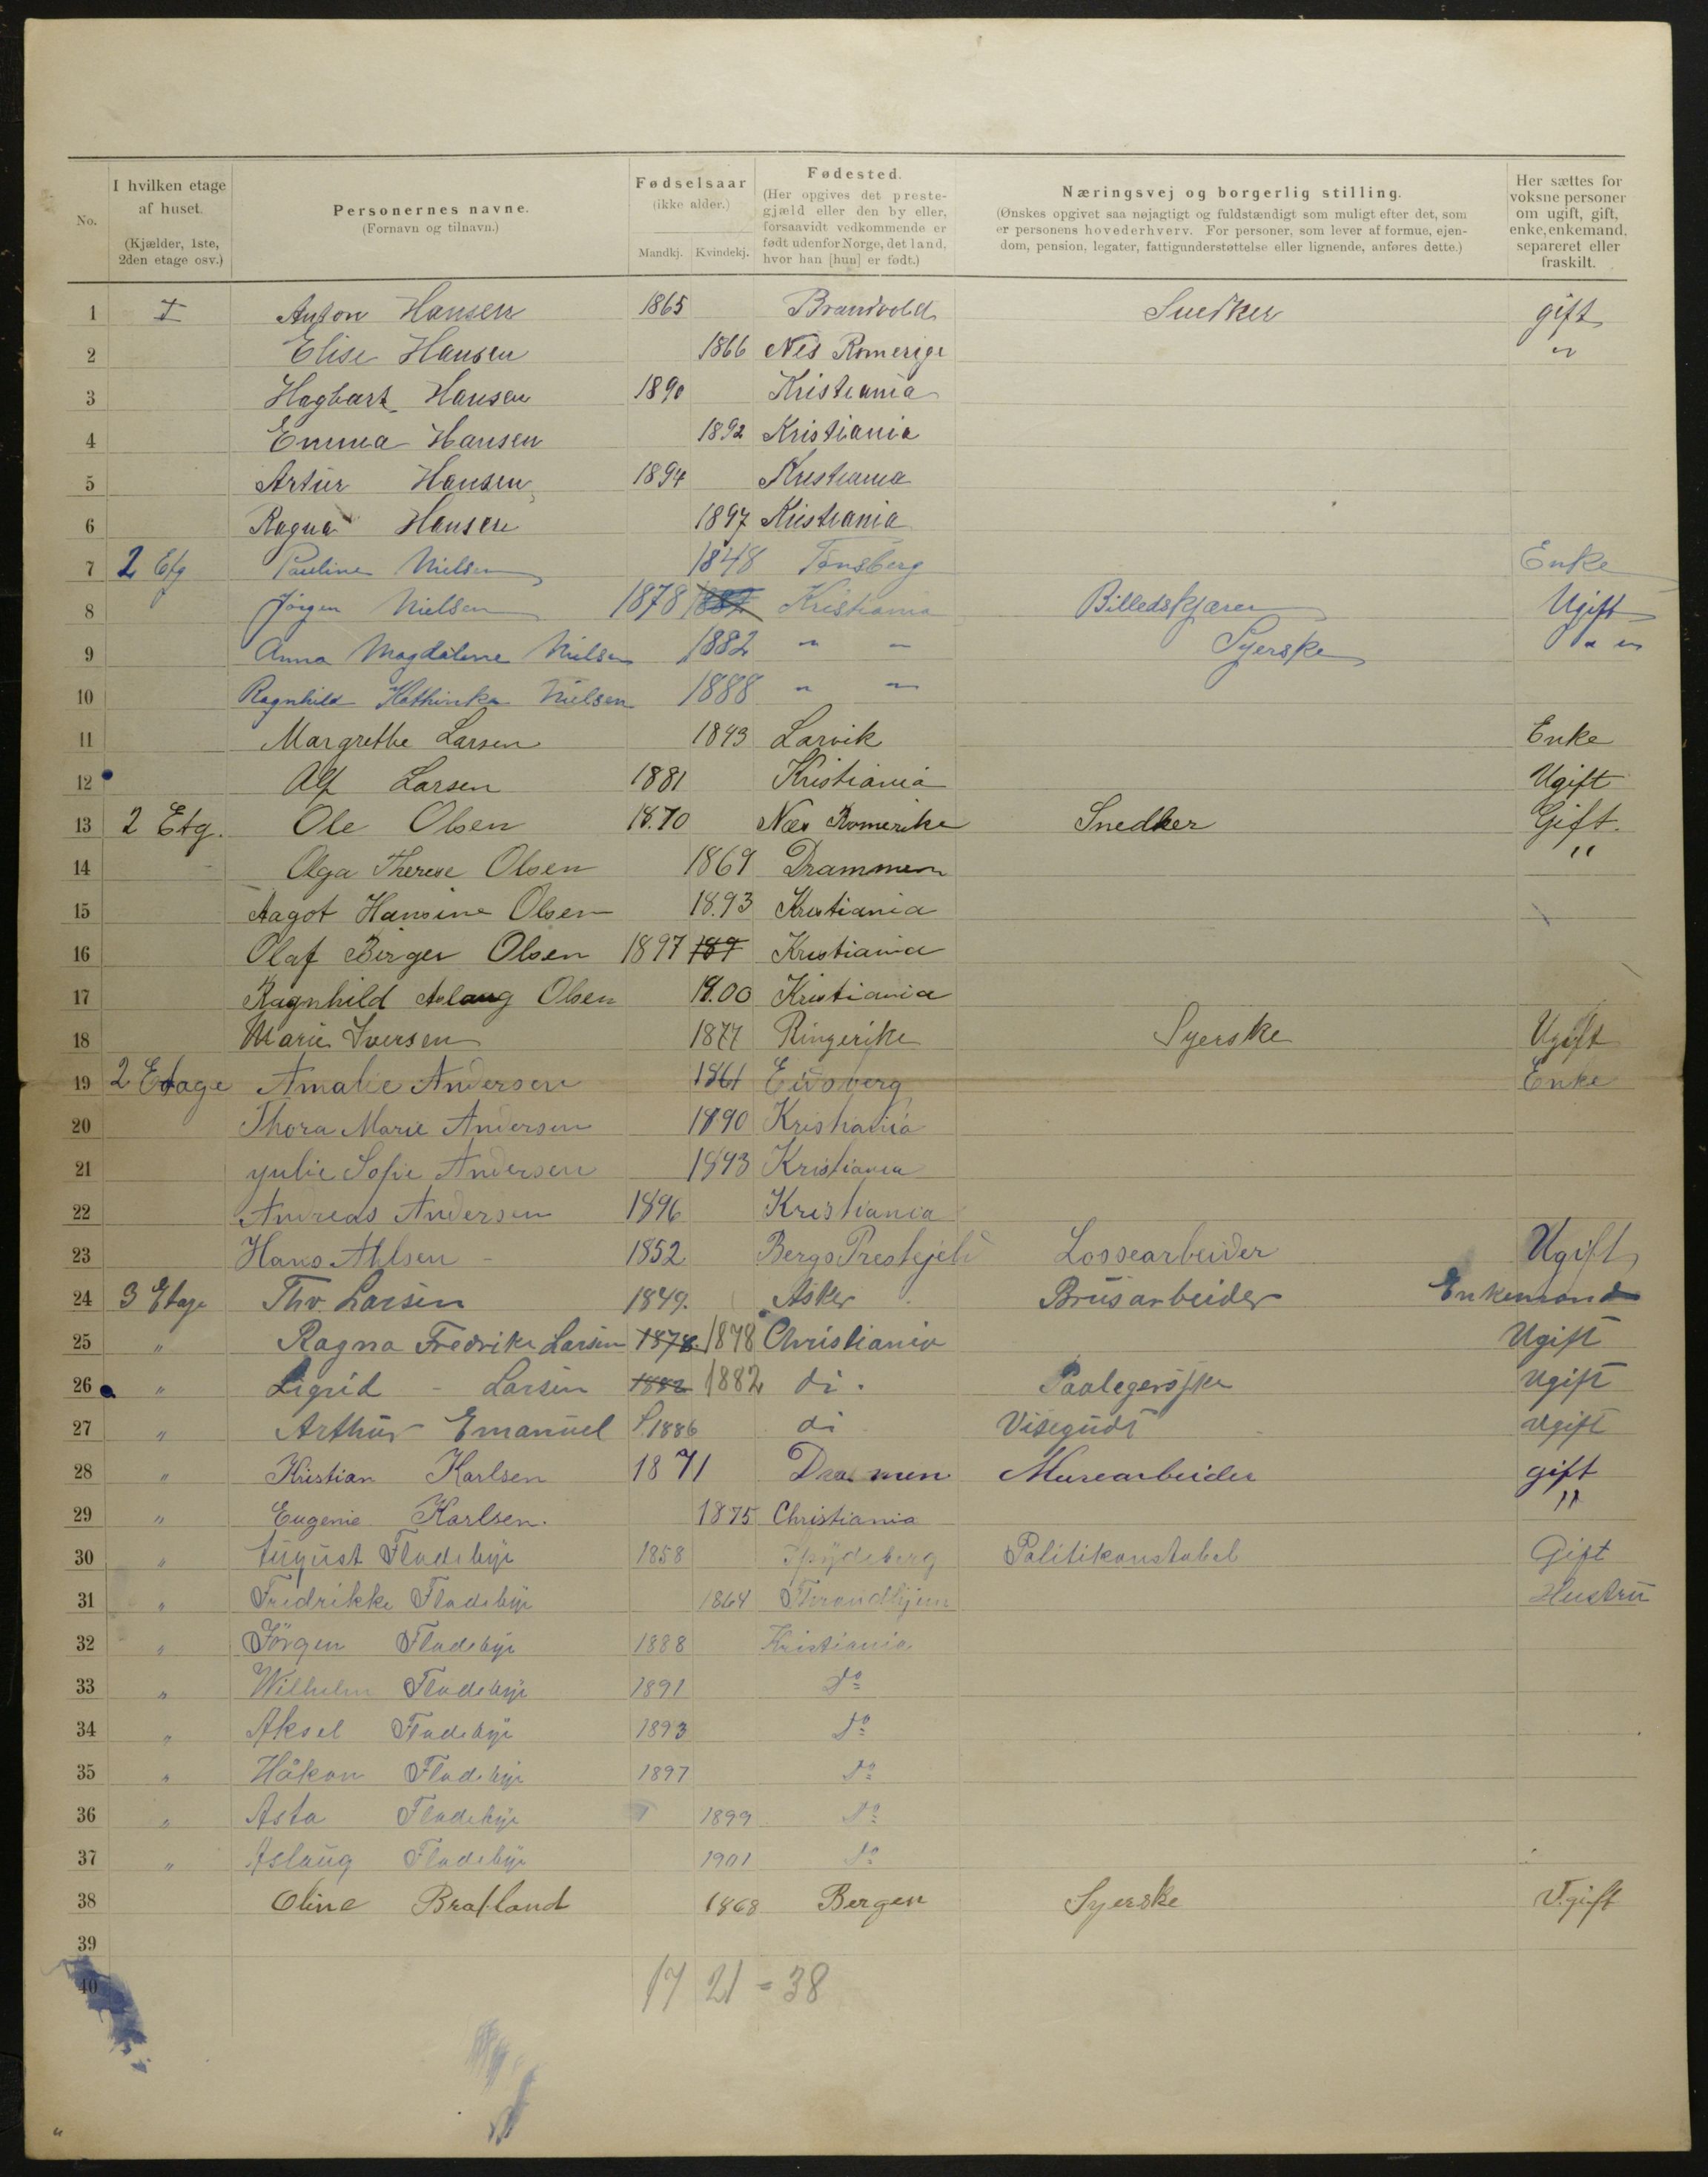 No.
I hvilken etage af huset.
(Kjælder, 1ste, 2den etage osv.)
Personernes navne.
(Fornavn og tilnavn.)
Fødselsaar
(ikke alder.)
Mandkj. Kvindekj.
Fødested.
(Her opgives det prestegjæld eller den by eller, forsaavidt vedkommende er født udenfor Norge, det land, hvor han [hun] er født.)
Næringsvej og borgerlig stilling.
(Ønskes opgivet saa nøjagtigt og fuldstændigt som muligt efter det, som er personens hovederhverv. For personer, som lever af formue, ejendom, pension, legater, fattigunderstøttelse eller lignende, anføres dette.)
Her sættes for voksne personer om ugift, gift, enke, enkemand, separeret eller fraskilt.
1 I Anton Hansen 1865 Brandvold Snedker gift
2 Elise Hansen 1866 Nes Romerige "
3 Hagbart Hansen 1890 Kristiania
4 Emma Hansen 1892 Kristiania
5 Artur Hansen 1894 Kristiania
6 Ragna Hansen 1897 Kristiania
7 2 Etg Pauline Nielsen 1848 Tønsberg Enke
8 Jörgen Nielsen 1878 Kristiania Billedskjærer Ugift
9 Anna Magdalene Nielsen 1882 " " Syerske " "
10 Ragnhild Kathinka Nielsen 1888 " "
11 Margrethe Larsen 1843 Larvik Enke
12 Alf Larsen 1881 Kristiania Ugift
13 2 Etg. Ole Olsen 18.70 Næs Romerike Snedker Gift.
14 Olga Therese Olsen 1869 Drammen "
15 Aagot Hansine Olsen 18.93 Kristiania
16 Olaf Birger Olsen 1897 189 Kristiania
17 Ragnhild Aslaug Olsen 19.00 Kristiania
18 Marie Iversen 1877 Ringerike Syerske Ugift
19 2 Etage Amalie Andersen 1861 Eidsberg Enke
20 Thora Marie Andersen 1890 Kristiania
21 Yulie Sofie Andersen 1893 Kristiania
22 Andreas Andersen 1896 Kristiania
23 Hans Ahlsen - 1852 Bergs Prestejeld Lossearbeider Ugift
24 3 Etage Thv. Larsen 1849. Asker Brüsarbeider Enkemand
25 " Ragna Fredrike Larsen 1878. 1878 Christiania Ugift
26 " Sigrid - Larsen 1882 1882 di. Paalegerske Ugift
27 " Arthur Emanuel 1886 di Visegüdt ugift
28 " Kristian Karlsen 1871 Drammen Murearbeider gift
29 " Eugenie Karlsen. 1875 Christiania "
30 " August Fladebye 1858 Spydeberg Politikonstabel Gift
31 " Fredrikke Fladebye 1864 Throndhjem Hustrü
32 " Jörgen Fladebye 1888 Kristiania
33 " Wilhelm Fladebye 1891 Do
34 " Aksel Fladebye 1893 Do
35 " Håkon Fladebye 1897 Do
36 " Asta Fladebye 1899 Do
37 " Aslaüg Fladebye 1901 Do
38 Oline Bratland 1868 Bergen Syerske Ugift
39
40
17 21 = 38